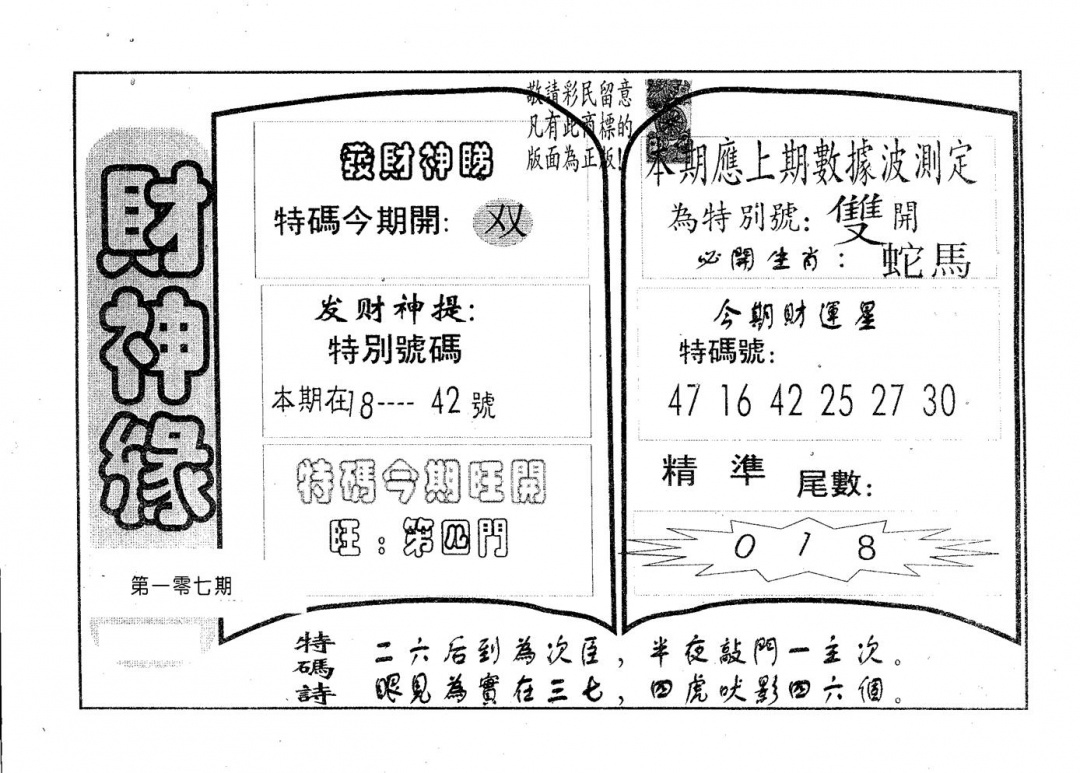 財神緣
第一零七期
敬請彩民留意
凡有此商標的
版面為正版!
發財神睇
特碼今期開: 双
发财神提:
特別號碼
本期在18---- 42號
特碼今期旺開
旺:第四門
本期應上期數據波測定
為特別號: 雙開
必開生肖: 蛇馬
今期財運星
特碼號:
47 16 42 25 27 30
精 準 尾數:
0 1 8
特碼詩
二六后到為次臣,半夜敲門一主次。
眼見為實在三七,四虎吠影四六個。